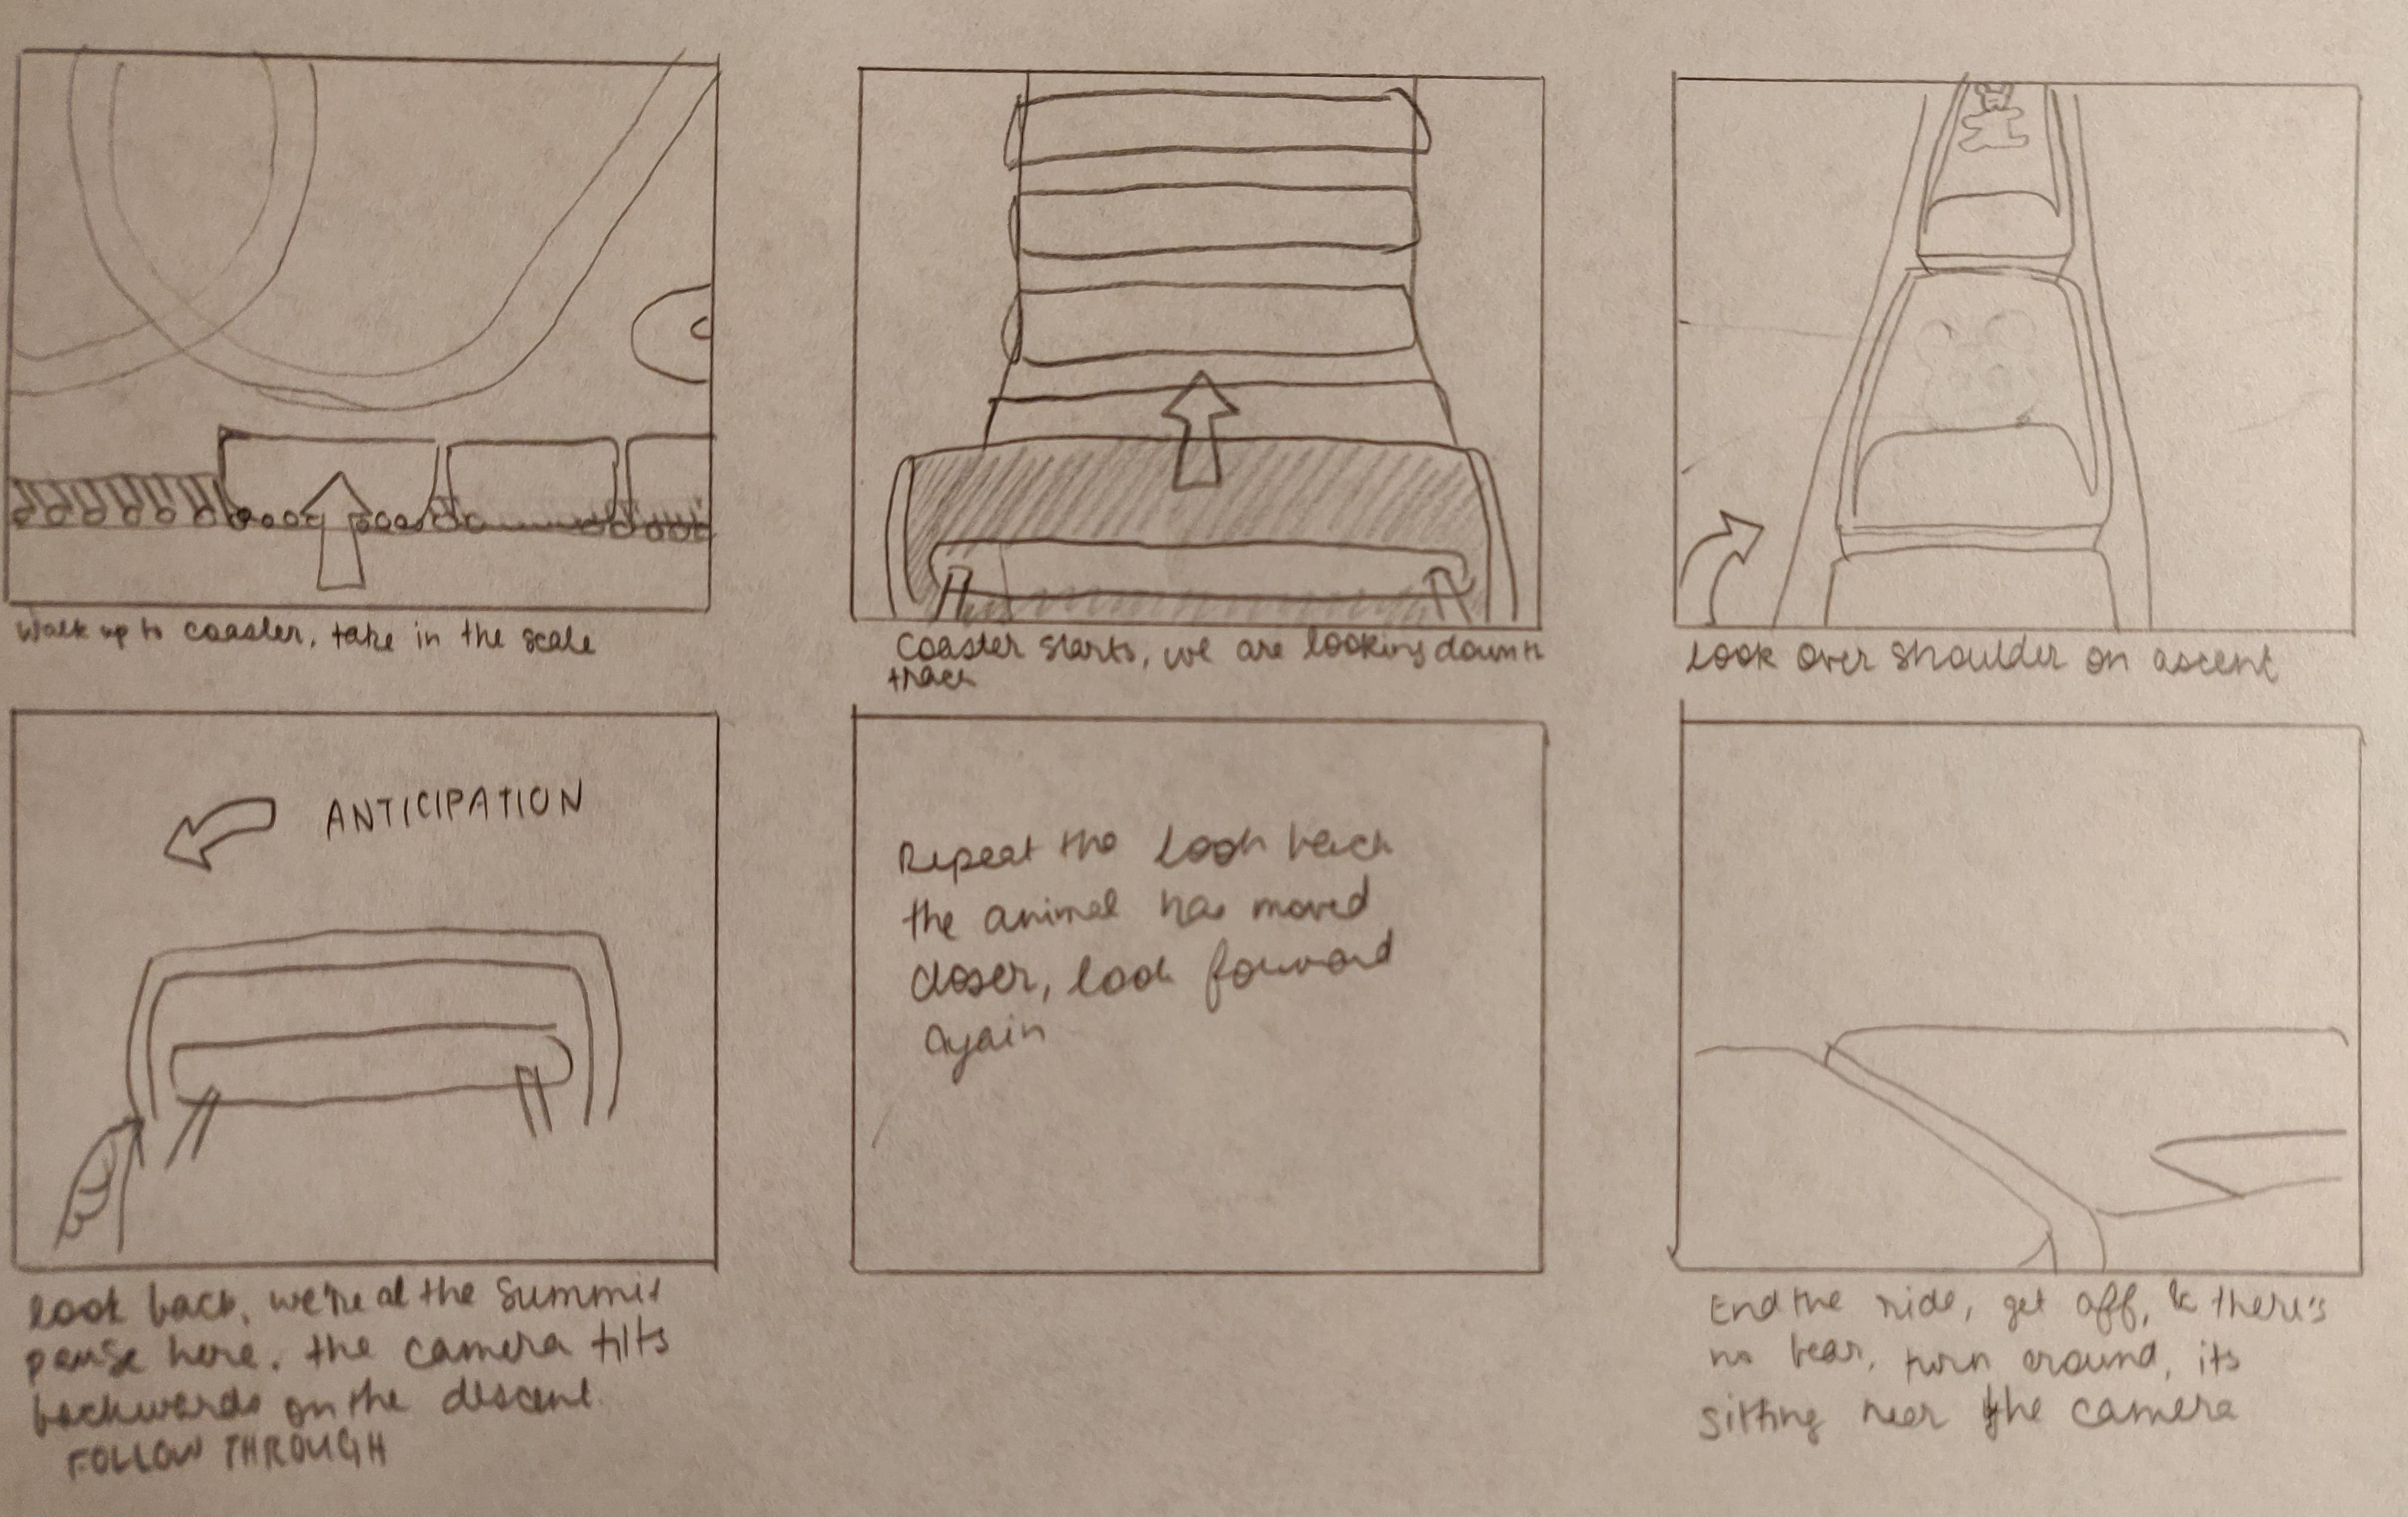 Walk up to coaster, take in the scale
Coaster starts, we are looking down
track
look over shoulder on ascent
ANTICIPATION
look back, we're at the summit
pause here. the camera tilts
backwards on the descent.
FOLLOW THROUGH
Repeat the look back
the animal has moved
closer, look forward
again
End the ride, get off, & there's
no bear, turn around, its
sitting near the camera